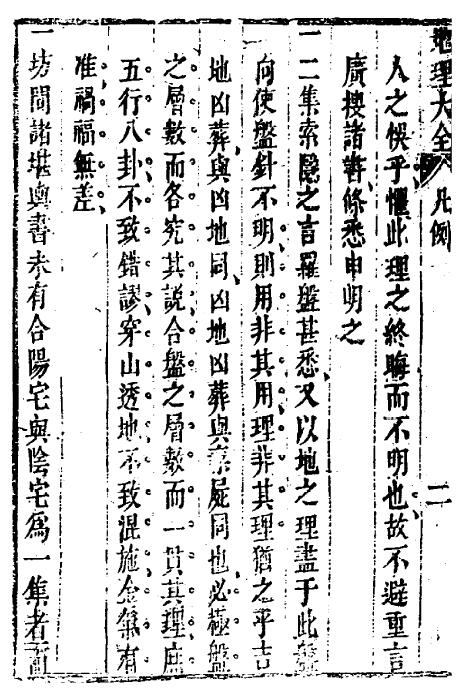 地理大全 凡例 二
人之悞乎懼此理之終晦而不明也故不避重言
廣搜諸書條悉申明之
一二集索隱之言羅盤甚悉又以地之理盡于此盤
向使盤針不明則用非其用理非其理猶之乎吉
地凶葬與凶地同凶地凶葬與棄屍同也必極盤
之層數而各究其說合盤之層數而一貫其理庶
五行八卦不致錯謬穿山透地不致混施金氣有
准禍福無差
一坊間諸堪輿書未有合陽宅與陰宅爲一集者